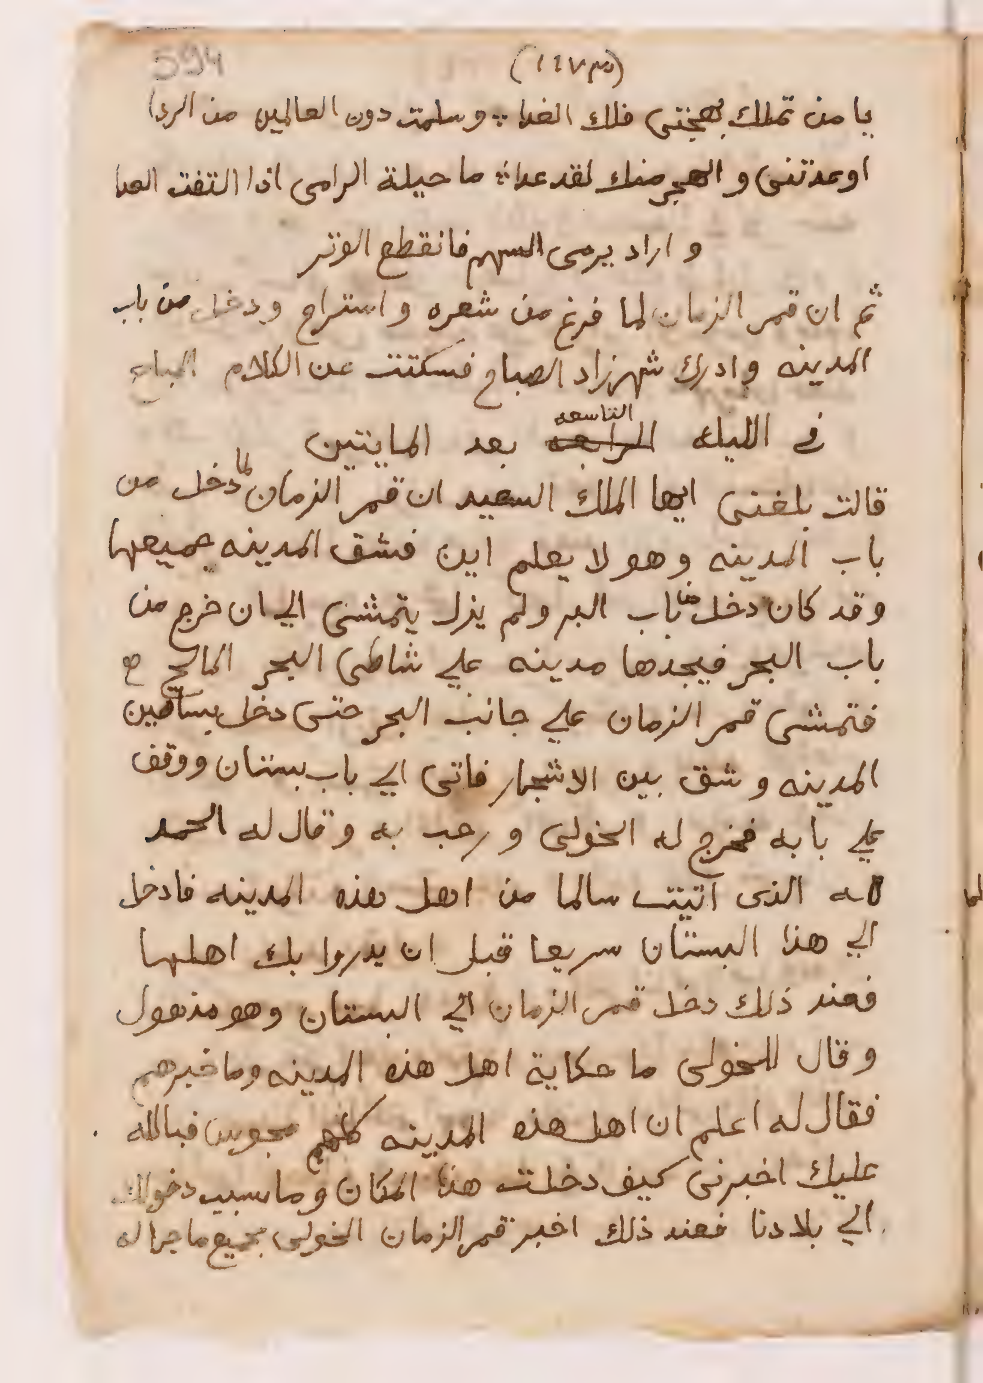 594
يا من تملك بمهجتي فلك الفدا ∴ وسلمت دون العالمين من الردا
اوعدتني و الهجر منك لقد عدا ∴ ما حيلة الرامي اذا التفت العدا
و اراد يرمي السهم فانقطع الوتر
ثم ان قمر الزمان لما فرغ من شعره و استراح و دخل من باب
المدينه و ادرك شهرزاد الصباح فسكتت عن الكلام المباح
في الليله الرابعه التاسعه بعد المايتين
قالت بلغني ايها الملك السعيد ان قمر الزمان لما دخل من
باب المدينه وهو لا يعلم اين فشق المدينه جميعها
وقد كان دخل من باب البر ولم يزل يتمشى الي ان خرج من
باب البحر فيجدها مدينه علي شاطي البحر المالح
فتمشى قمر الزمان علي جانب البحر حتى دخل بساتين
المدينه وشق بين الاشجار فاتى الي باب بستان ووقف
علي بابه فخرج له الخولي و رحب به وقال له الحمد
لله الذي اتيت سالما من اهل هذه المدينه فادخل
الي هذا البستان سريعا قبل ان يدروا بك اهلها
فعند ذلك دخل قمر الزمان الي البستان وهو مذهول
وقال للخولي ما حكاية اهل هذه المدينه وما خبرهم
فقال له اعلم ان اهل هذه المدينه كلهم مجوس فبالله
عليك اخبرني كيف دخلت هذا المكان وما سبب دخولك
الي بلادنا فعند ذلك اخبر قمر الزمان الخولي بجميع ما جرا له